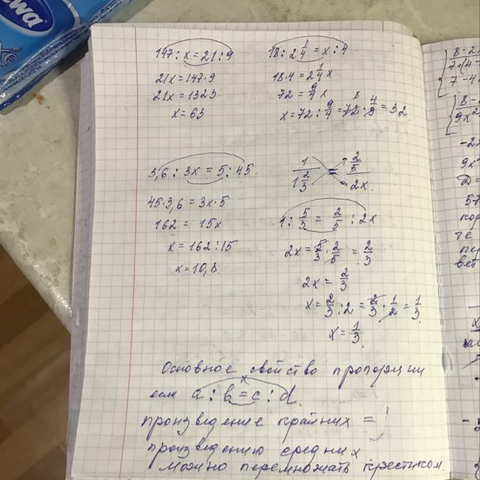 147 : x = 21 : 9
21x = 147·9
21x = 1323
x = 63
18 : 2 1/4 = x : 4
18·4 = 2 1/4 x
72 = 9/4 x
x = 72 : 9/4 = 72 · 4/9 = 32
3,6 : 3x = 5 : 45
45·3,6 = 3x·5
162 = 15x
x = 162 : 15
x = 10,8
1 / 1 2/3 = 2/5 / 2x
1 : 5/3 = 2/5 : 2x
2x = 5/3 · 2/5 = 2/3
2x = 2/3
x = 2/3 : 2 = 2/3 · 1/2 = 1/3
x = 1/3
Основное свойство пропорции
если a : b = c : d.
произведение крайних =
произведению средних
Можно перемножать крестиком